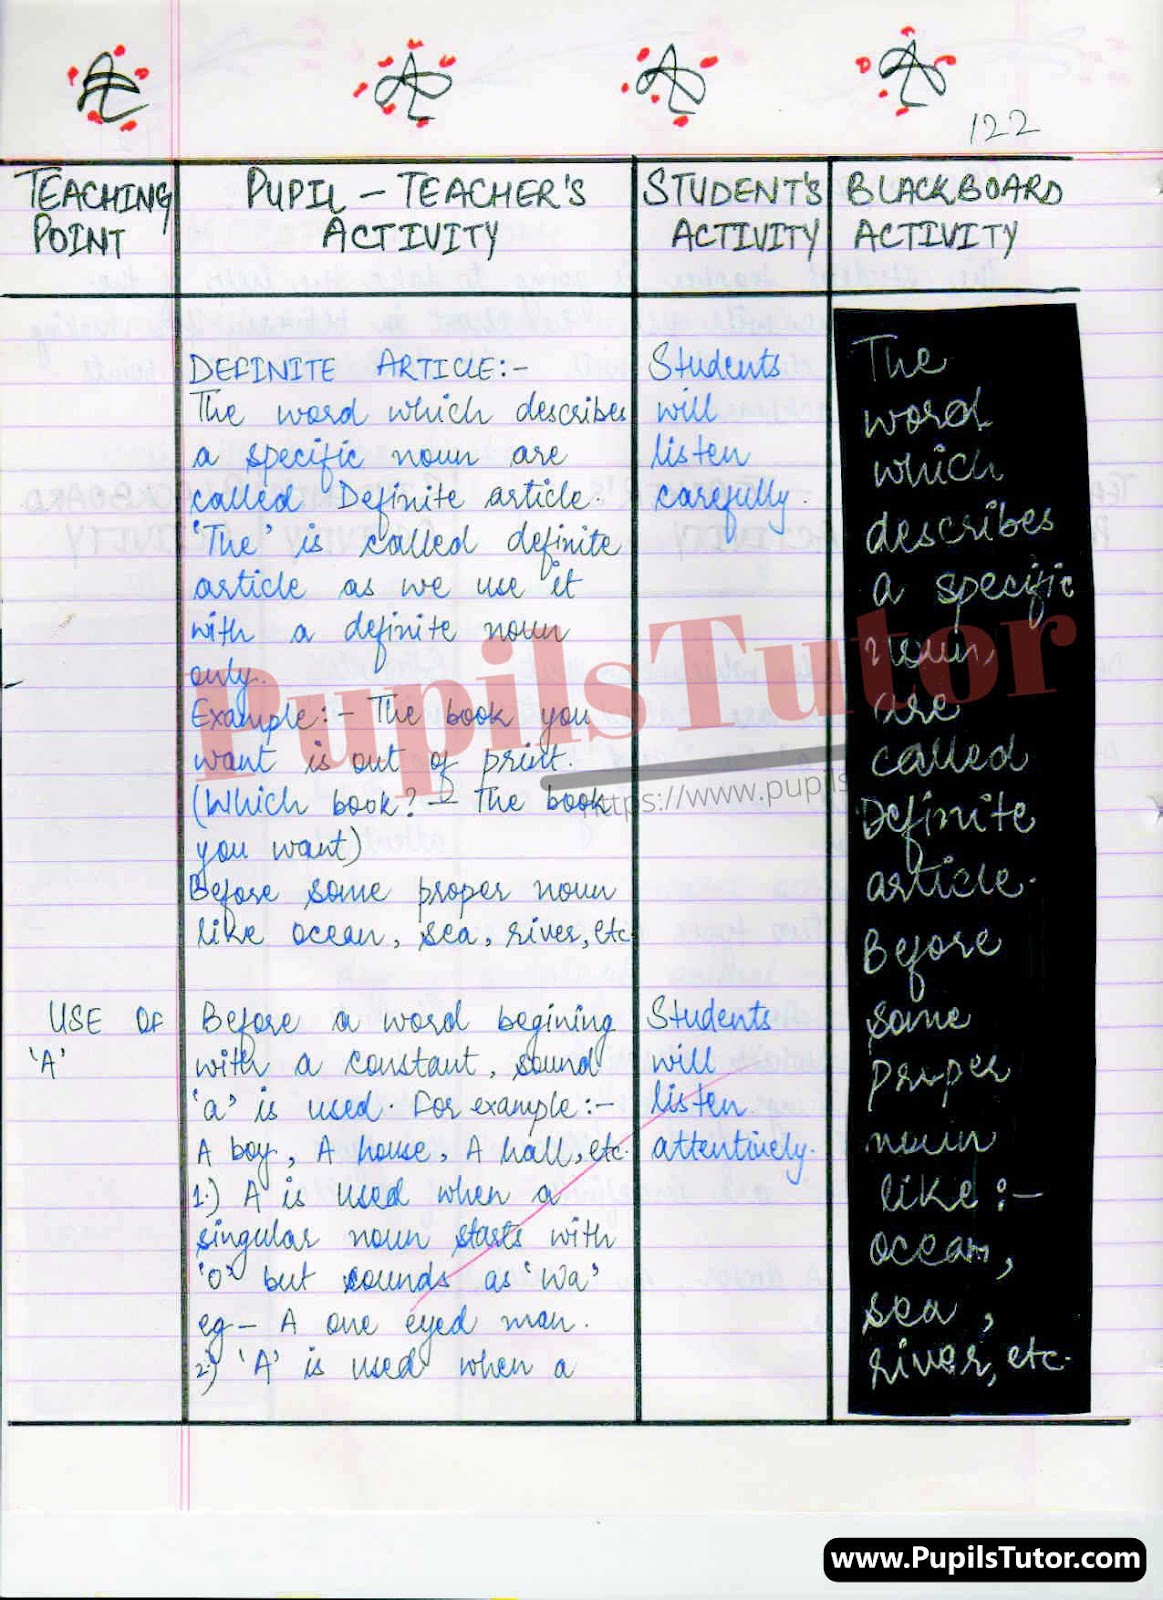 122
TEACHING
POINT
PUPIL - TEACHER'S
ACTIVITY
STUDENT'S
ACTIVITY
BLACKBOARD
ACTIVITY
DEFINITE ARTICLE:-
The word which describes
a specific noun are
called Definite article.
'The' is called definite
article as we use it
with a definite noun
only.
Example:- The book you
want is out of print.
(Which book? - The book
you want)
Before some proper noun
like ocean, sea, river, etc
Students
will
listen
carefully.
USE OF
'A'
Before a word begining
with a constant, sound
'a' is used. For example:-
A boy, A house, A hall, etc.
1.) A is used when a
singular noun starts with
'O' but sounds as 'Wa'
eg - A one eyed man.
2.) 'A' is used when a
Students
will
listen
attentively.
The
word
which
describes
a specific
noun
are
called
Definite
article.
Before
some
proper
noun
like:-
ocean,
sea,
river, etc.
PupilsTutor
https://www.pupils
www.PupilsTutor.com